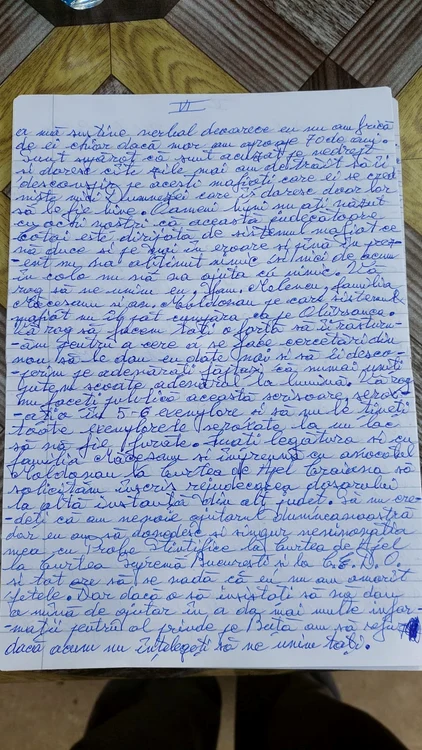 VI
a mă susține verbal deoarece eu nu am frică
de ei chiar dacă mor am aproape 70 de ani.
Sunt supărat că sunt acuzat pe nedrept
și doresc cîte zile mai am de trăit să-i
descopăr pe acești mafioți care ei se cred
niște mici Dumnezei care își doresc doar lor
să le fie bine. Oameni buni nu ați văzut
cu ochii noștri că această judecătoare
totăi este dirijată de sistemul mafiot ce
vă duce și pe mai în eroare și pînă în prez-
ent nu ați obținut nimic și nici de acum
în colo nu vă va ajuta cu nimic. Vă
rog să ne unim eu, Dvs, familia
Măcesanu și av. Moldovan pe care sistemul
mafiot nu îl pot cumpăra ca pe
Vă rog să facem toți o forță să îi răsturn-
ăm pentru a cere a se face cercetări din
nou, să le dau eu date mai și să îi desco-
perim pe adevărații făptași că numai uniți
putem scoate adevărul la lumină. Vă rog
nu faceți publică această scrisoare, xerox-
ați-o în 5-6 exemplare și nu le țineți
toate exemplarele separate la un loc
să nu fie furate. Luați legătura și cu
familia Măcesanu și împreună cu avocatul
Moldovan la Curtea de Apel Craiova să
solicităm înscris rejudecarea dosarului
la altă instanță din alt județ. Să nu cre-
deți că am nevoie ajutorul dumneavoastră
dar eu am să dovedesc și singur nevinovăția
mea cu Probe Științifice la Curtea de Apel
la Curtea Supremă București și la C.E.D.O.
și tot are să se vadă că eu nu am omorît
fetele. Dar dacă o să insistați să vă dau
o mînă de ajutor în a da mai multe infor-
mații pentru al prinde pe Bătă am să refuz
dacă acum nu înțelegeți să ne unim toți.